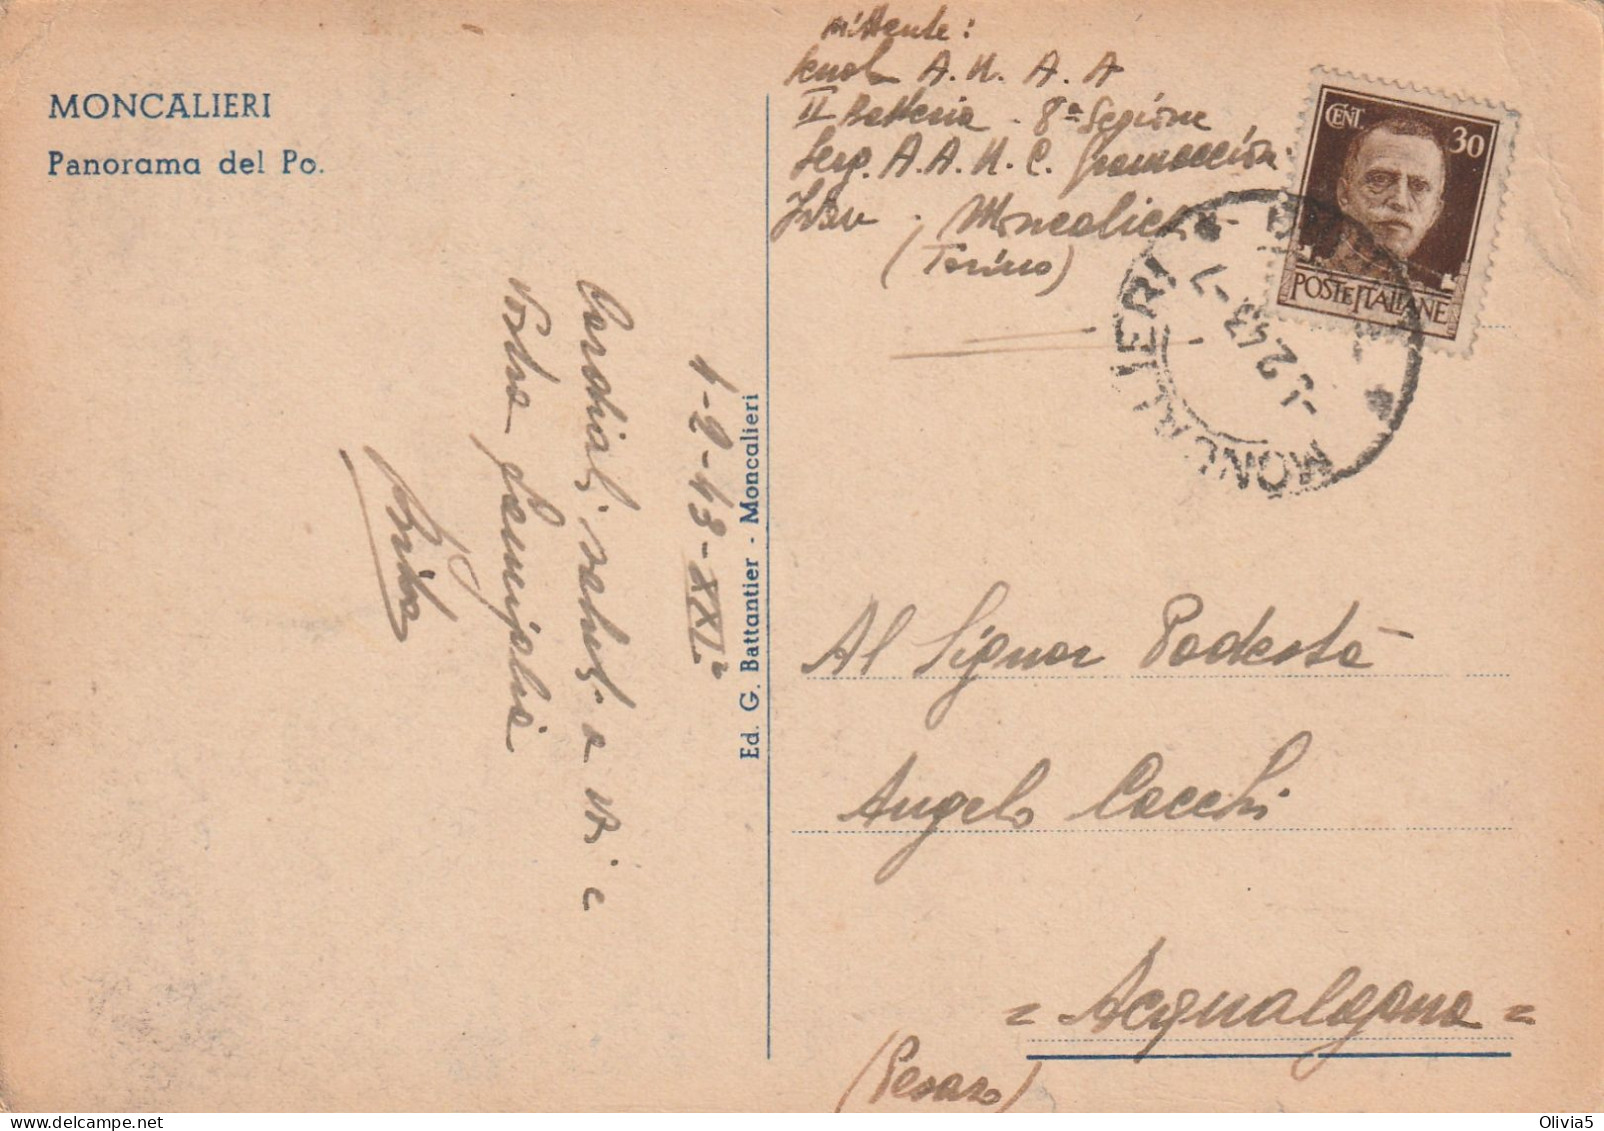 MONCALIERI
Panorama del Po.
Mittente:
A. U. A. A
II Batteria - 8ª Sezione
Serg. A. A. U. C.
Moncalieri
(Torino)
CENT. 30
POSTE ITALIANE
MONCALIERI
2.43
4-2-43-XXI.
Cordiali saluti a Voi e
Vostra famiglia
Ed. G. Battantier - Moncalieri
Al Signor Podestà
Angelo Cecchi
= Acqualagna =
(Pesaro)
Olivia5